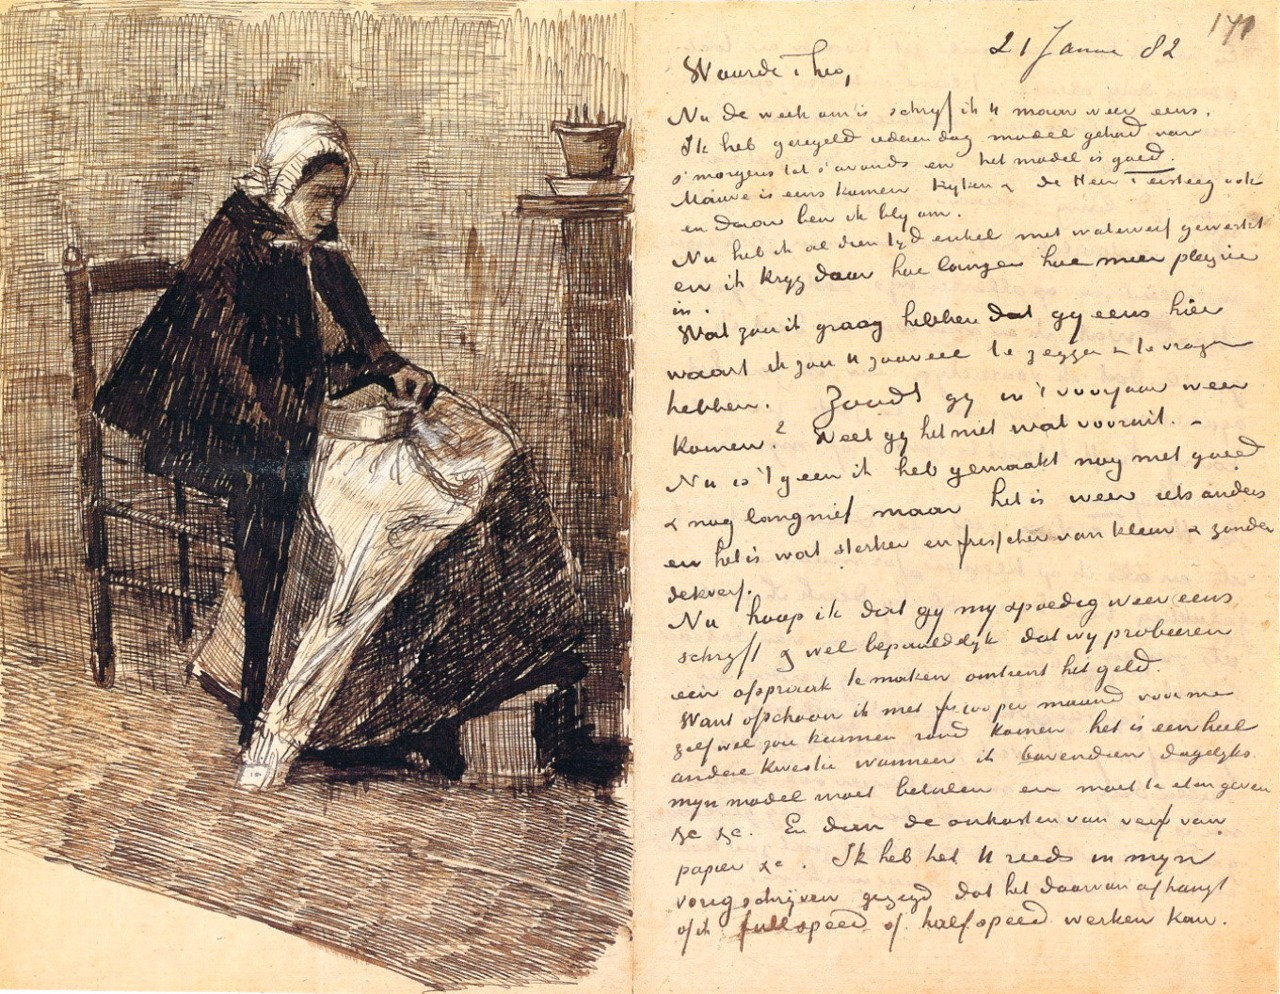 171
21 Janu 82
Waarde Theo,
Nu de week om is schryf ik U maar weer eens.
Ik heb geregeld iederen dag model gehad van
s'morgens tot s'avonds en het model is goed.
Mauve is eens komen kyken & de Heer Tersteeg ook
en daar ben ik bly om.
Nu heb ik al dien tyd enkel met waterverf gewerkt
en ik kryg daar hoe langer hoe meer pleizier
in.
Wat zou ik graag hebben dat gy eens hier
waart ik zou U zooveel te zeggen & te vragen
hebben. Zoudt gy in 't voorjaar weer
komen? Weet gy het niet wat vooruit. -
Nu is 't geen ik heb gemaakt nog niet goed
& nog lang niet maar het is weer iets anders
en het is wat sterker en frisscher van kleur & zonder
dekverf.
Nu hoop ik dat gy my spoedig weer eens
schryft & wel bepaaldelyk dat wy probeeren
een afspraak te maken omtrent het geld.
Want ofschoon ik met fr. 100 per maand voor me
zelf wel zou kunnen rond komen het is een heel
andere kwestie wanneer ik bovendien dagelyks
myn model moet betalen en moet te eten geven
&c &c. En dien de onkosten van verf van
papier &c. Ik heb het U reeds in myn
vorig schrijven gezegd dat het daarvan afhangt
of ik full speed of half speed werken kan.